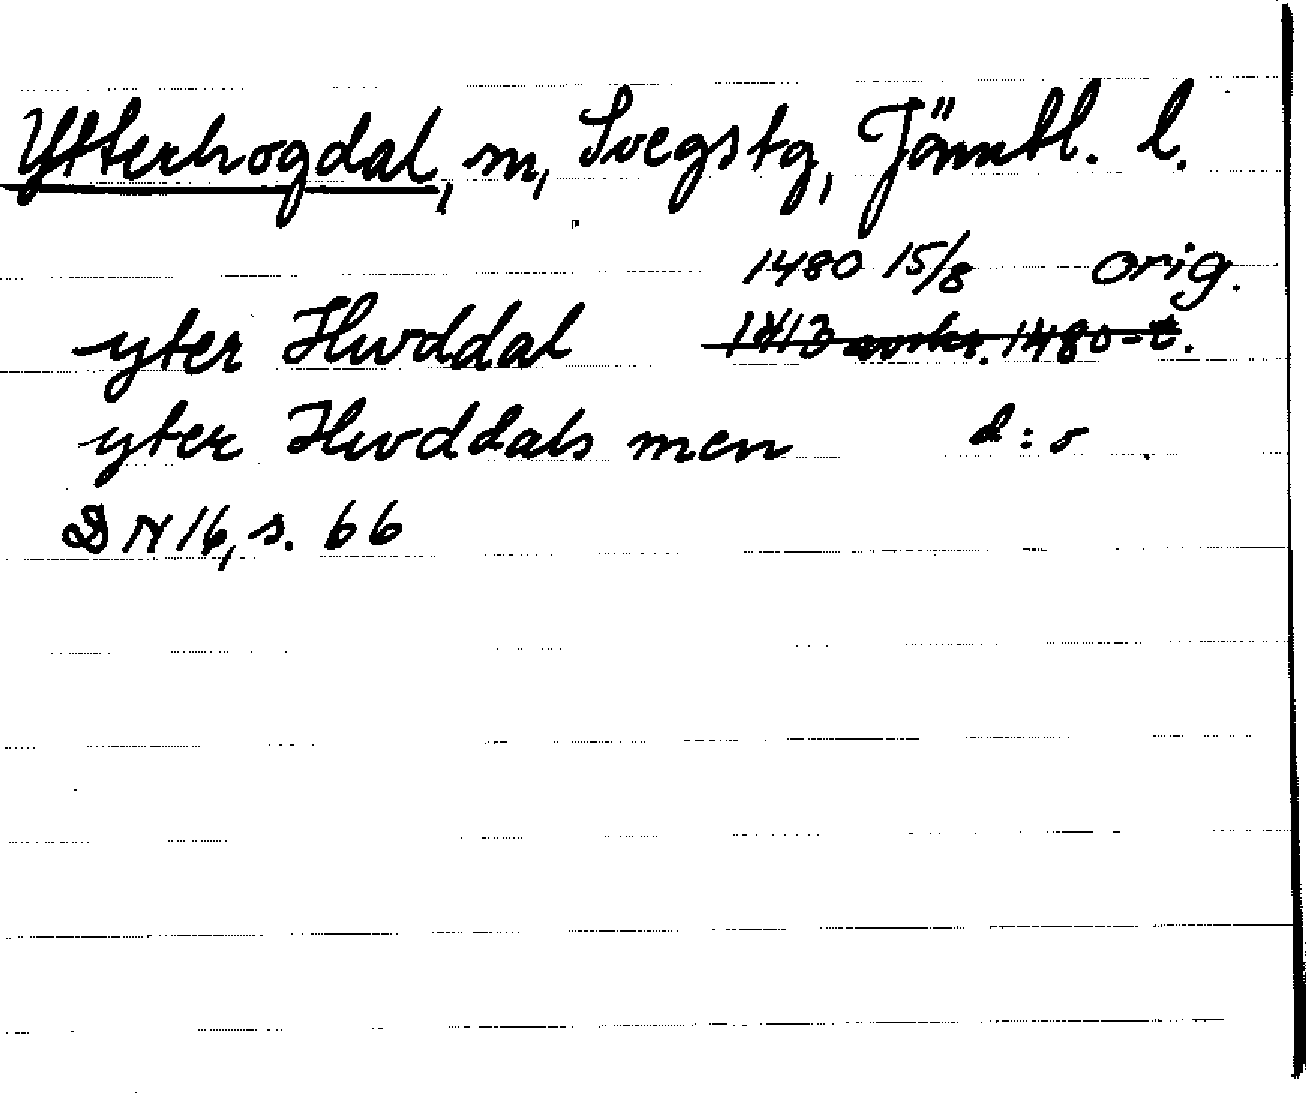 Ytterhogdal, sn, Svegs tg, Jämtl. l.
1480 15/8 orig.
yter Hwddal 1413 avskr. 1480-t.
yter Hwddals men d:o
DN 16, s. 66